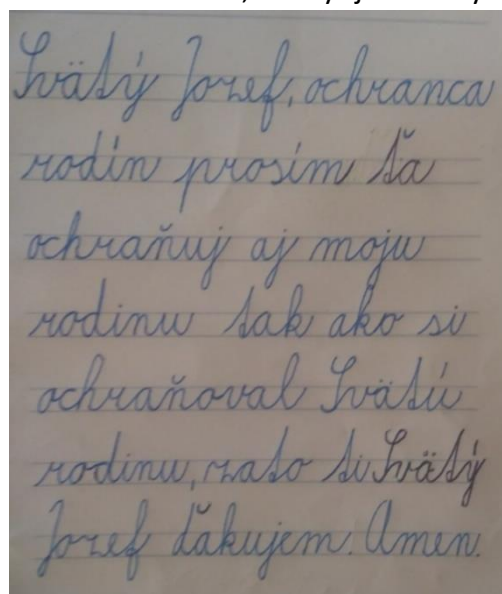 Svätý Jozef, ochranca
rodín prosím ťa
ochraňuj aj moju
rodinu tak ako si
ochraňoval Svätú
rodinu, zato ti Svätý
Jozef ďakujem. Amen.